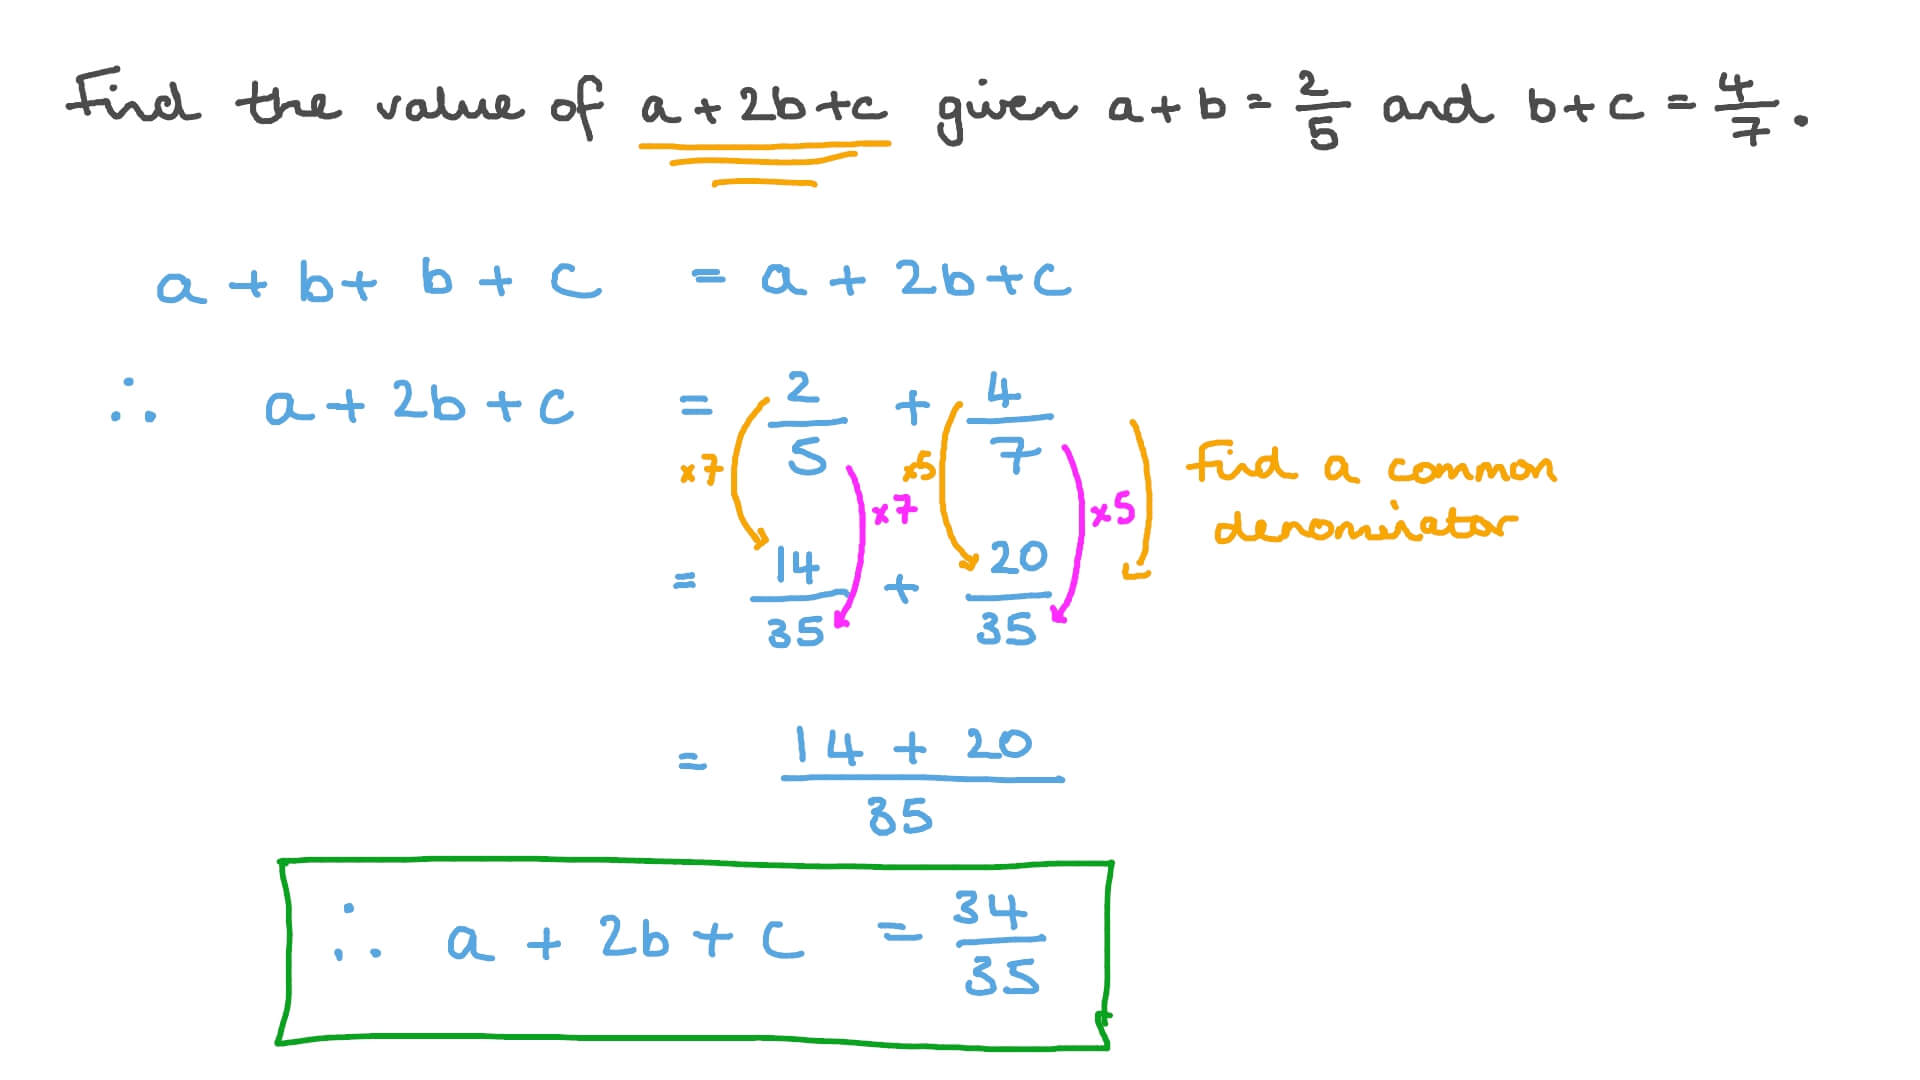 Find the value of a + 2b + c given a + b = 2/5 and b + c = 4/7.
a + b + b + c = a + 2b + c
∴ a + 2b + c = 2/5 + 4/7
×7 ×5 Find a common
×7 ×5 denominator
= 14/35 + 20/35
= (14 + 20)/35
∴ a + 2b + c = 34/35